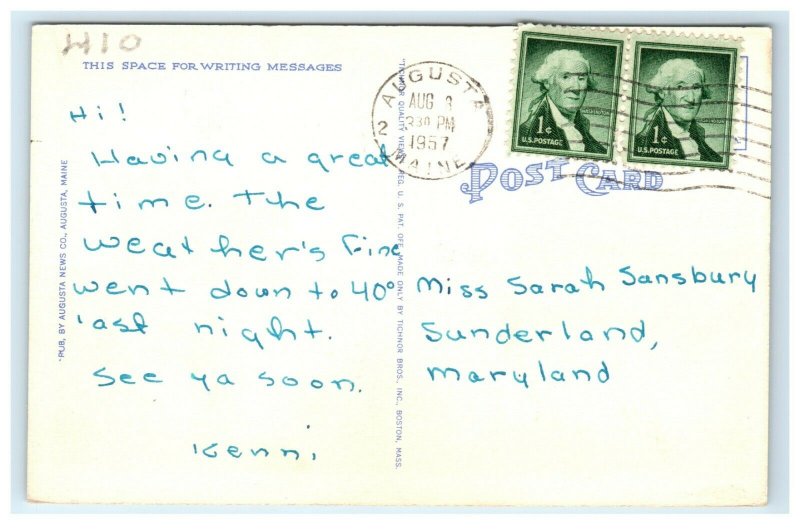 H10
THIS SPACE FOR WRITING MESSAGES
Hi!
Having a great
time. The
weather's fine
went down to 40°
last night.
See ya soon.
Kenni
PUB. BY AUGUSTA NEWS CO., AUGUSTA, MAINE
"TICHNOR QUALITY VIEWS," REG. U. S. PAT. OFF. MADE ONLY BY TICHNOR BROS., INC., BOSTON, MASS.
AUGUSTA
AUG
330 PM
2
1957
MAINE
WASHINGTON
1¢
U.S. POSTAGE
1¢
U.S. POSTAGE
POST CARD
Miss Sarah Sansbury
Sunderland,
Maryland